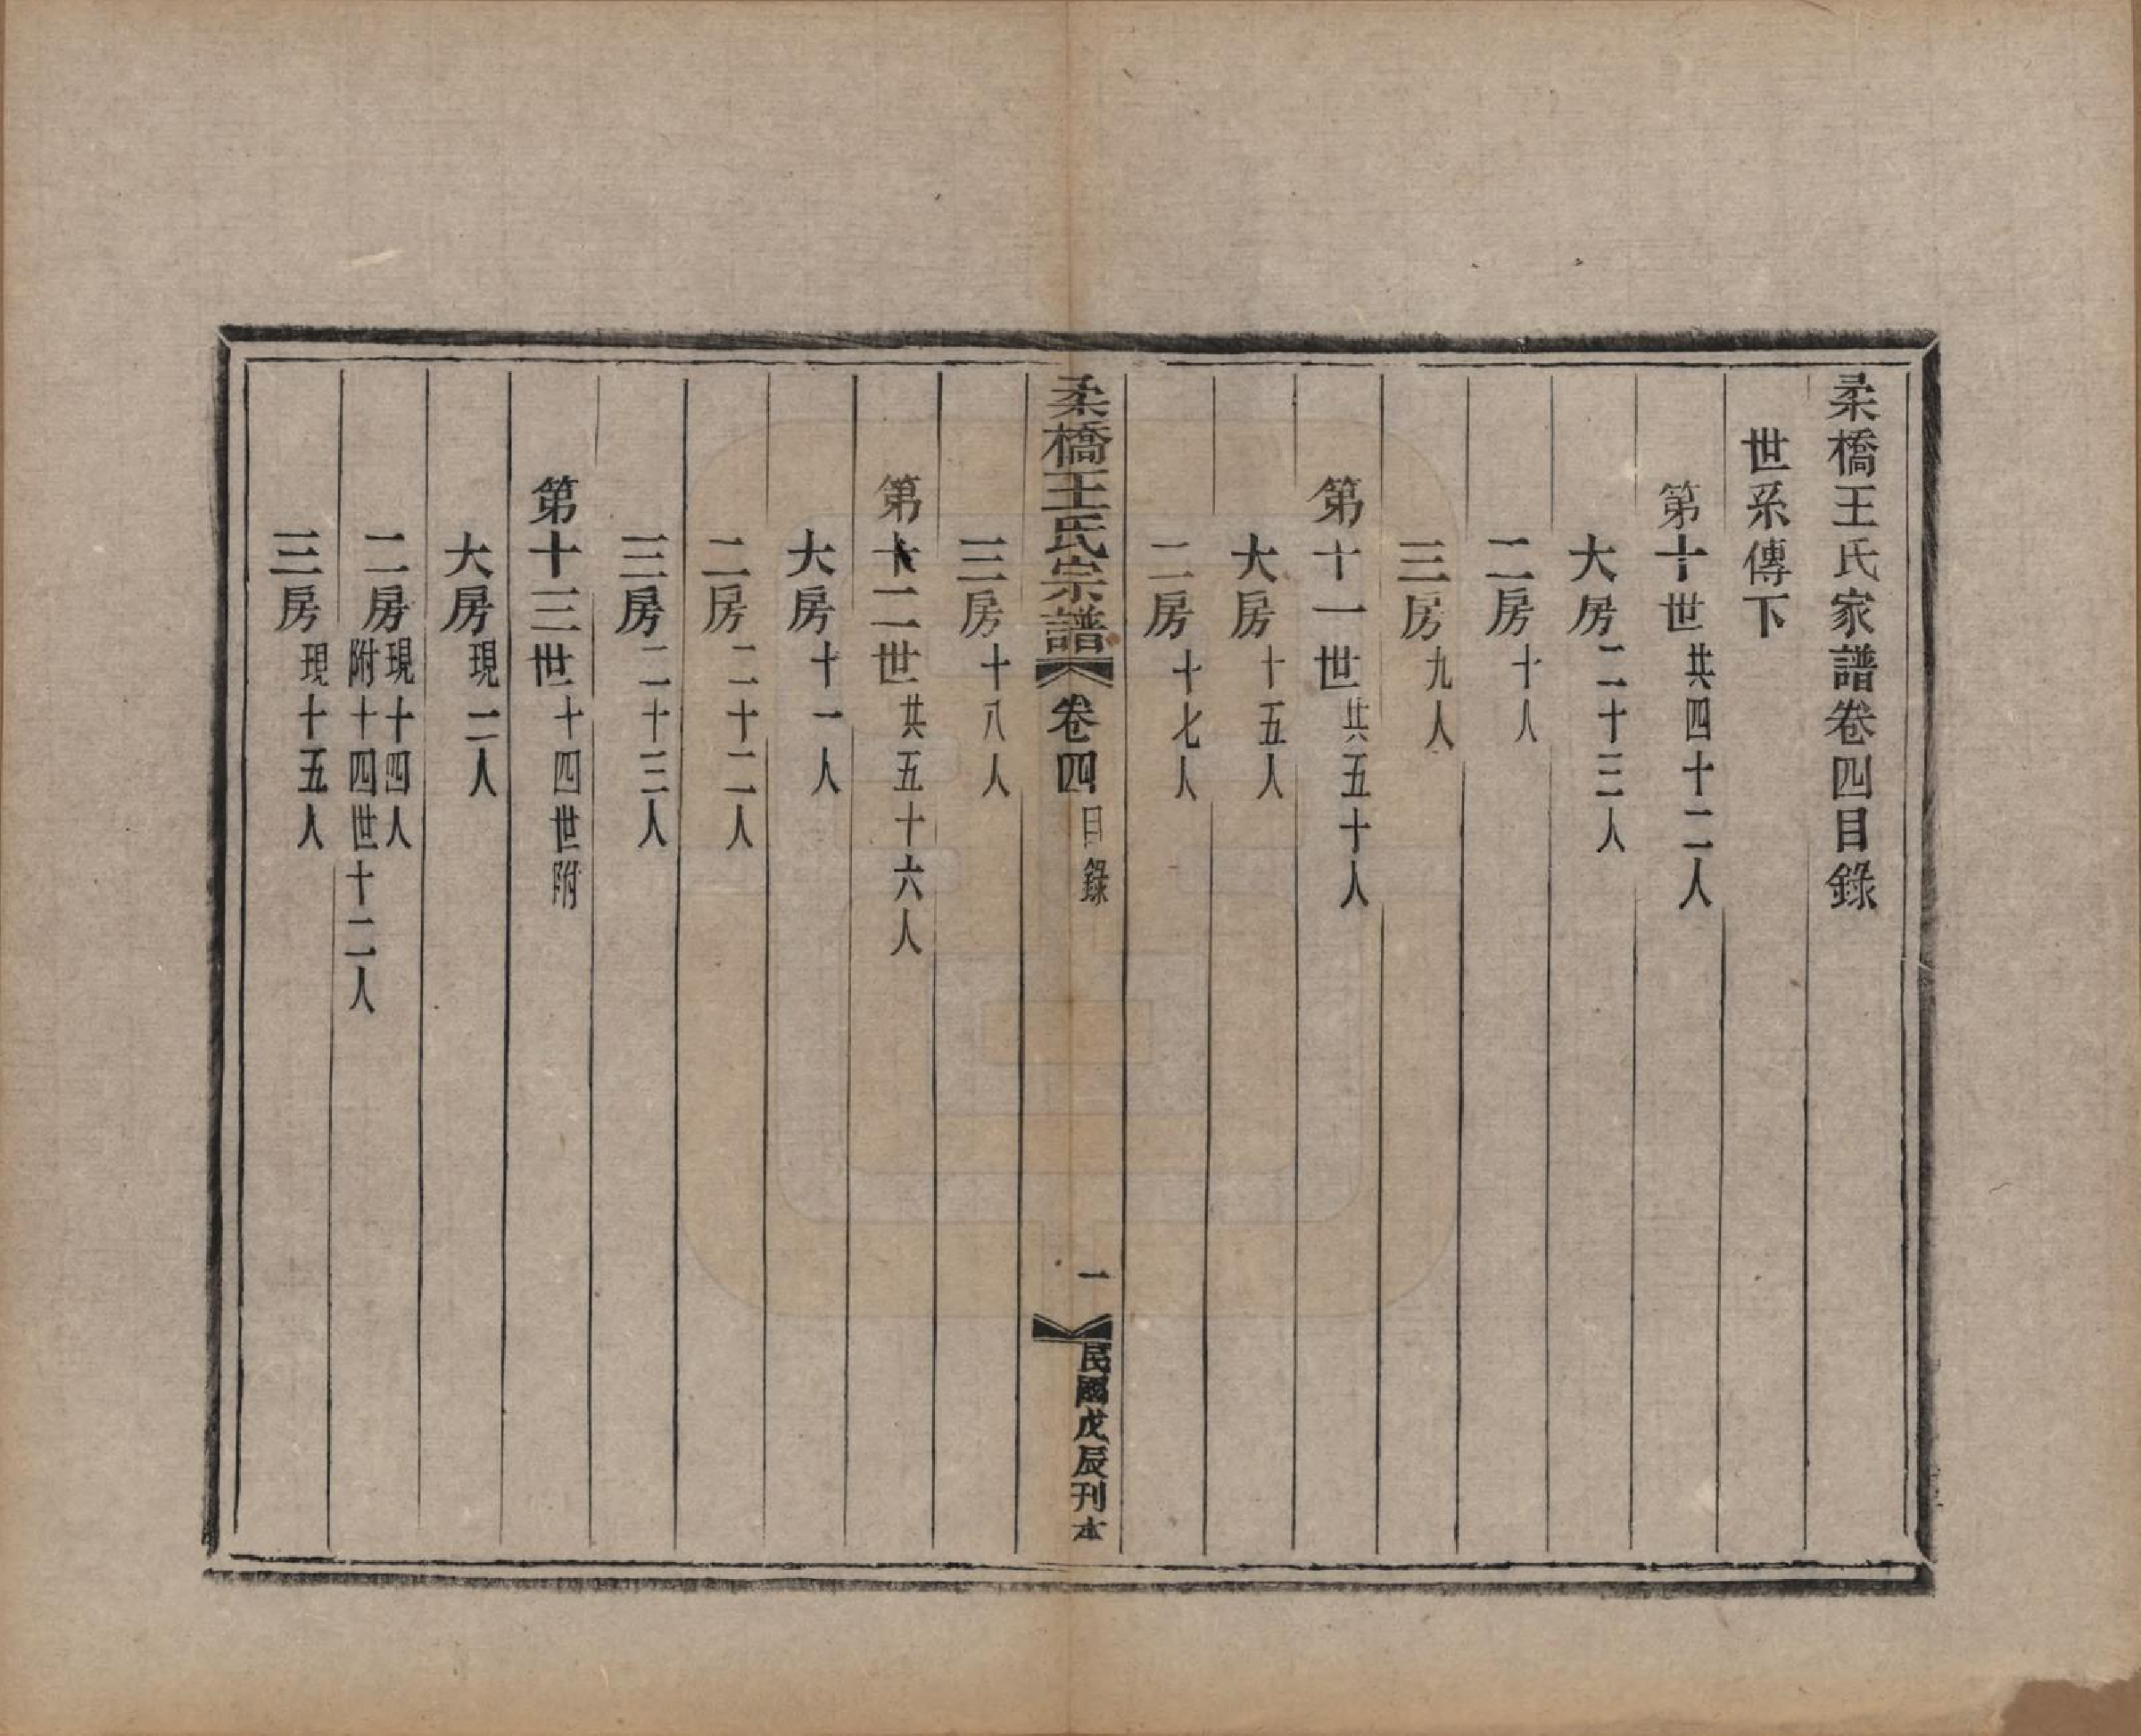 柔橋王氏家譜卷四目錄
世系傳下
第十世共四十二人
大房二十三人
二房十人
三房九人
第十一世共五十人
大房十五人
二房十七人
柔橋王氏宗譜 卷四 目錄 一 民國戊辰刊本
三房十八人
第十二世共五十六人
大房十一人
二房二十二人
三房二十三人
第十三世十四世附
大房現二人
二房現十四人
附十四世十二人
三房現十五人